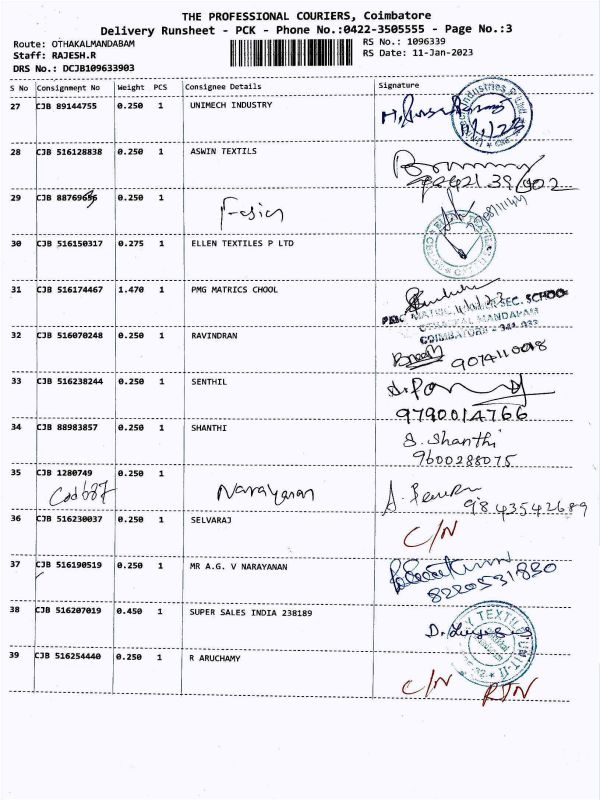 THE PROFESSIONAL COURIERS, Coimbatore
Delivery Runsheet - PCK - Phone No.:0422-3505555 - Page No.:3
Route: OTHAKALMANDABAM
RS No.: 1096339
Staff: RAJESH.R
RS Date: 11-Jan-2023
DRS No.: DCJB109633903
S No Consignment No Weight PCS Consignee Details Signature
27 CJB 89144755 0.250 1 UNIMECH INDUSTRY
28 CJB 516128838 0.250 1 ASWIN TEXTILS
29 CJB 88769656 0.250 1
30 CJB 516150317 0.275 1 ELLEN TEXTILES P LTD
31 CJB 516174467 1.470 1 PMG MATRICS CHOOL
SEC. SCHOOL
MANDAPAM
COIMBATORE
32 CJB 516070248 0.250 1 RAVINDRAN
33 CJB 516238244 0.250 1 SENTHIL
9790014766
34 CJB 88983857 0.250 1 SHANTHI S. Shanthi
9600288075
35 CJB 1280749 0.250 1
Narayanan
9843542689
36 CJB 516230037 0.250 1 SELVARAJ C/N
37 CJB 516190519 0.250 1 MR A.G. V NARAYANAN
8220531830
38 CJB 516207019 0.450 1 SUPER SALES INDIA 238189
39 CJB 516254440 0.250 1 R ARUCHAMY
C/N RTN